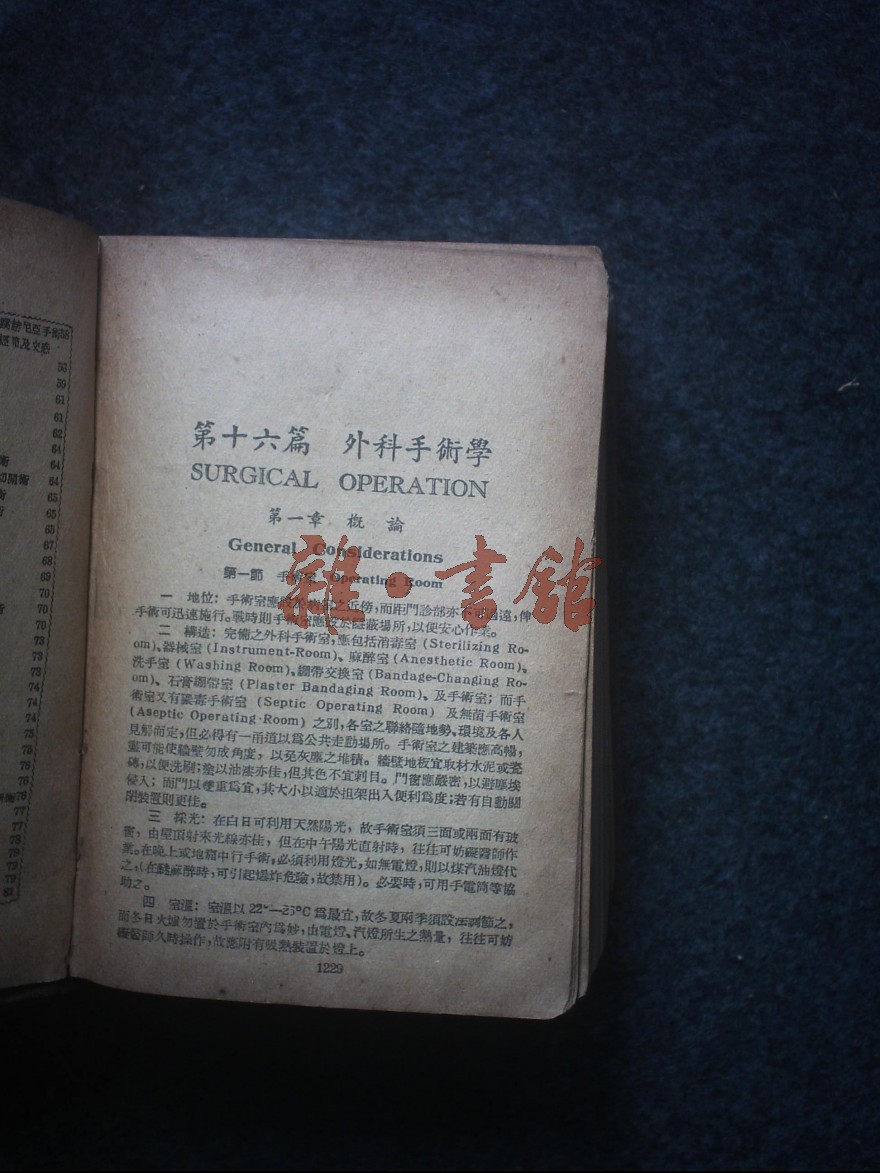 手術58
及交感
55
59
61
61
62
64
術 64
切開術 64
術 65
術 65
65
67
68
69
70
術 70
70
73
73
74
74
75
76
術76
77
77
78
79
79
81
第十六篇 外科手術學
SURGICAL OPERATION
第一章 概論
General Considerations
第一節 手術室 Operating Room
雜·書館
一 地位: 手術室應設於病室之近傍,而距門診部亦不過遠,俾
手術可迅速施行。戰時則手術室應設於隱蔽場所,以便安心作業。
二 構造: 完備之外科手術室,應包括消毒室 (Sterilizing Ro-
om)、器械室 (Instrument-Room)、麻醉室 (Anesthetic Room)、
洗手室 (Washing Room)、綳帶交換室 (Bandage-Changing Ro-
om)、石膏綳帶室 (Plaster Bandaging Room)、及手術室; 而手
術室又有膿毒手術室 (Septic Operating Room) 及無菌手術室
(Aseptic Operating-Room) 之別,各室之聯絡隨地勢、環境及各人
見解而定,但必得有一甬道以爲公共走動場所。手術室之建築應高暢,
盡可能使牆壁勿成角度,以免灰塵之堆積。牆壁地板宜取材水泥或瓷
磚,以便洗刷;塗以油漆亦佳,但其色不宜刺目。門窗應嚴密,以避塵埃
侵入;而門以雙重爲宜,其大小以適於担架出入便利爲度;若有自動關
閉裝置則更佳。
三 採光: 在白日可利用天然陽光,故手術室須三面或兩面有玻
窗,由屋頂射來光綫亦佳,但在中午陽光直射時,往往可妨礙醫師作
業。在晚上或地窟中行手術,必須利用燈光,如無電燈,則以煤汽油燈代
之,(在醚蔴醉時,可引起爆炸危險,故禁用)。必要時,可用手電筒等協
助之。
四 室溫: 室溫以 22°—25°C 爲最宜,故冬夏兩季須設法調節之,
而冬日火爐勿置於手術室內爲妙,由電燈、汽燈所生之熱量,往往可妨
礙醫師久時操作,故應附有吸熱裝置於燈上。
1229